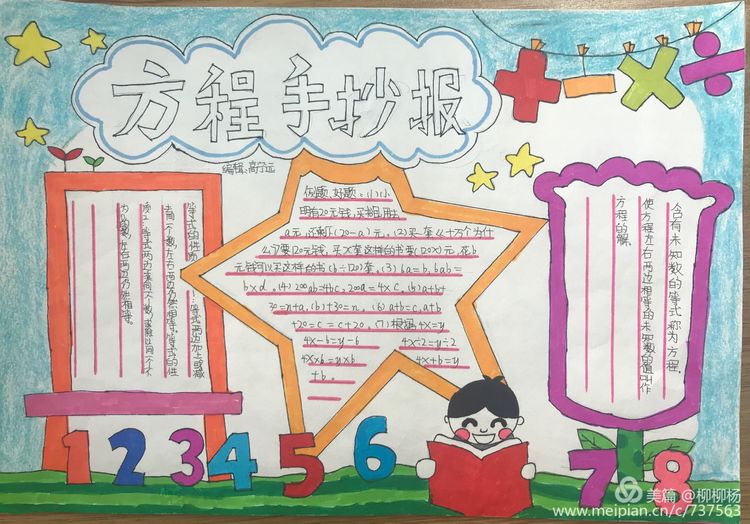 方程手抄报
编辑:高宁远
等式的性质
等式两边加上或减
去同一个数,左右两边仍然相等。等式的性
质2:等式两边乘同一个数,或除以同一个不
为0的数,左右两边仍然相等。
例题,好题:(1)小
明有20元钱,买书包用去
a元,还剩下(20-a)元。(2)买一套《十万个为什
么》要120元钱,买X套这样的书要(120X)元,花b
元钱可以买这样的书(b÷120)套,(3)6a=b,6ab=
b×d。(4)200ab=4bc,200a=4×c。(5)a+b+
30=n+a,(b)+30=n。(6)a+b=c,a+b
+20=c=c+20。(7)根据4x=y
4x-6=y-6 4x÷2=y÷2
4x×b=y×b 4x+b=y
+b。
含有未知数的等式称为方程,
使方程左右两边相等的未知数的值叫作
方程的解。
1 2 3 4 5 6 7 8
美篇 @柳柳杨
www.meipian.cn/c/737563